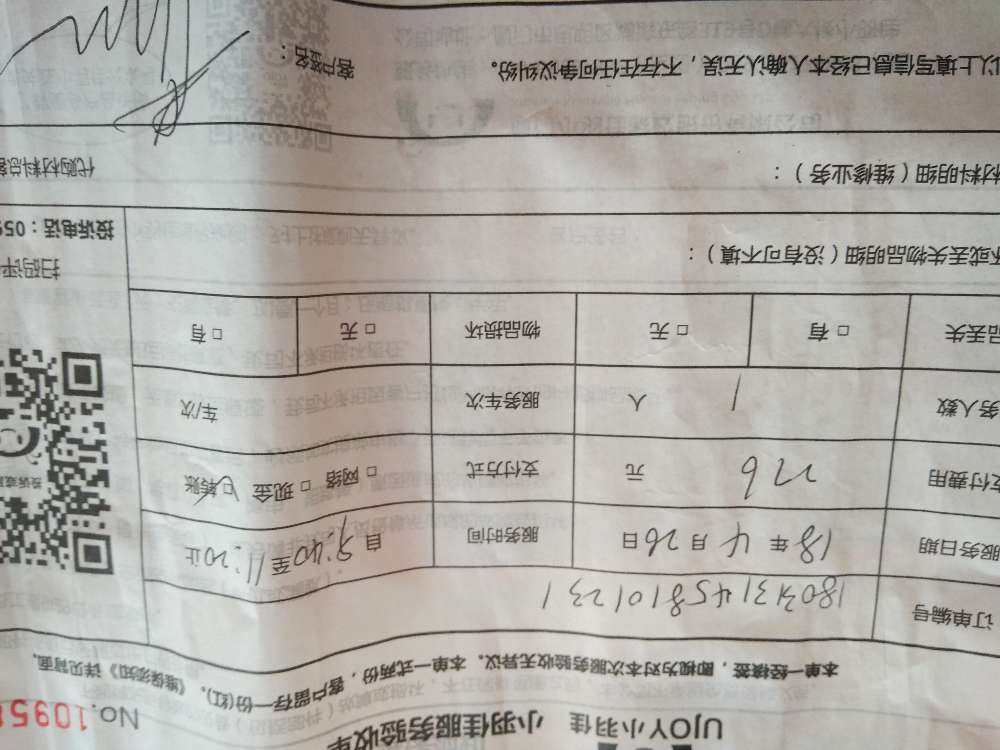 UJOY小羽佳 小羽佳服务验收单
No.1095
本单一经续签，即视为对本次服务验收无异议。本单一式两份，客户留存一份(红)。《维保须知》详见背面。
订单编号
服务日期 18年4月26日 服务时间 自9:40至11:20止
支付费用 226 元 支付方式 □网络 □现金 □转账
务人数 1 人 服务车次 车/次
品丢失 □有 □无 物品损坏 □无 □有
坏或丢失物品明细（没有可不填）：
扫码评
投诉电话：059
材料明细（维修业务）：
代购材料总
以上填写信息已经本人确认无误，不存在任何争议纠纷。
客户签名：